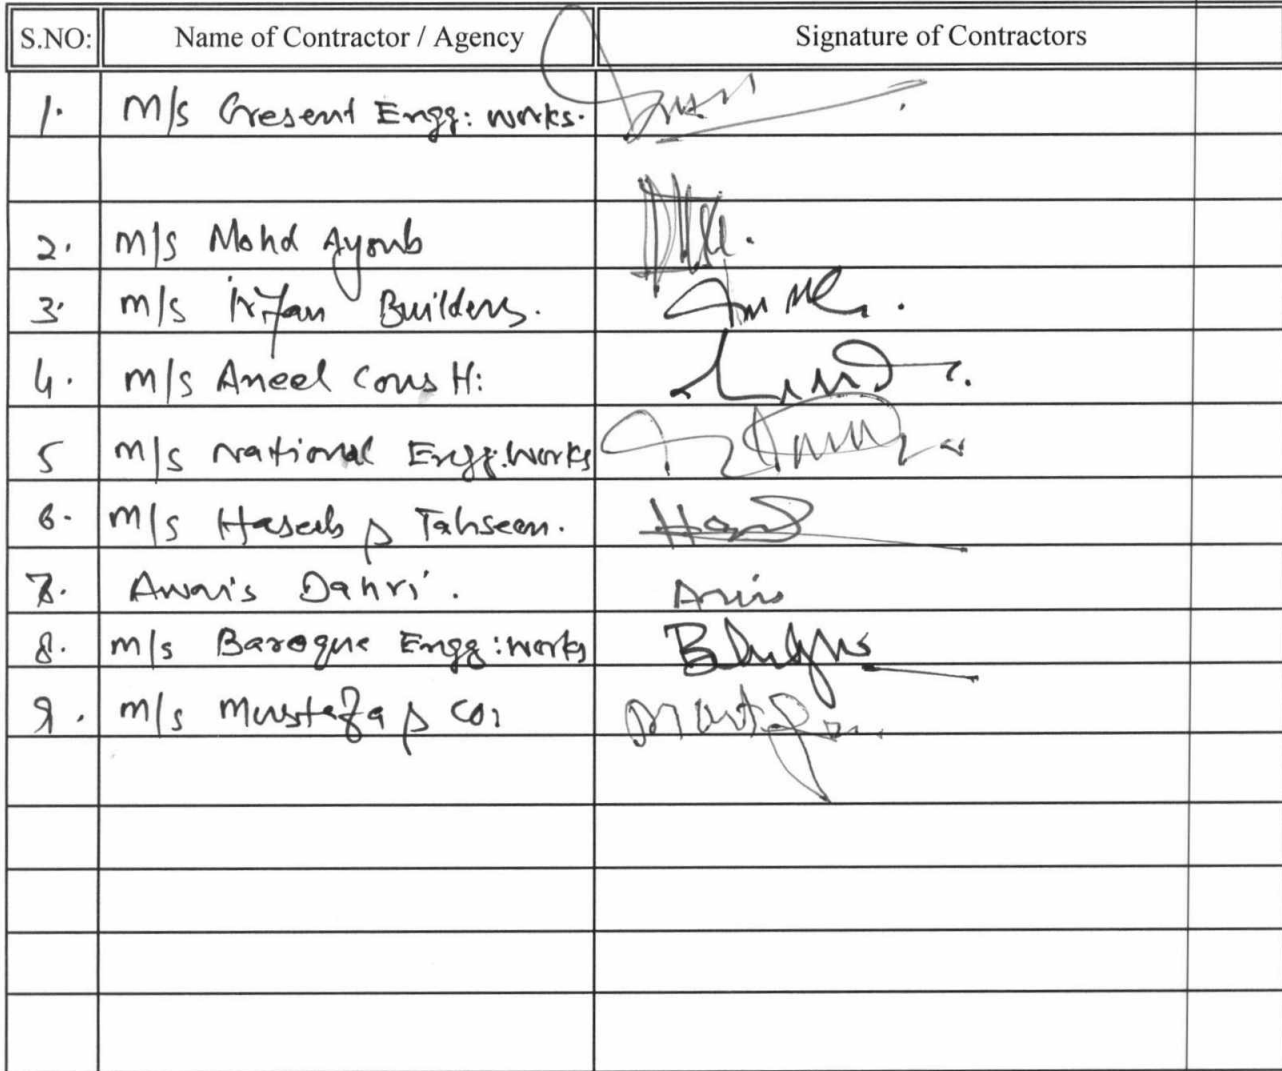 S.NO: Name of Contractor / Agency Signature of Contractors
1. M/S Cresent Engg: works.
2. M/S Mohd Ayoub
3. M/S Irfan Builders.
4. M/S Aneel Constt:
5 M/S National Engg: works
6. M/S Haseeb & Tahseen.
7. Awais Dahri.
8. M/S Baroque Engg: works
9. M/S Mustafa & Co: